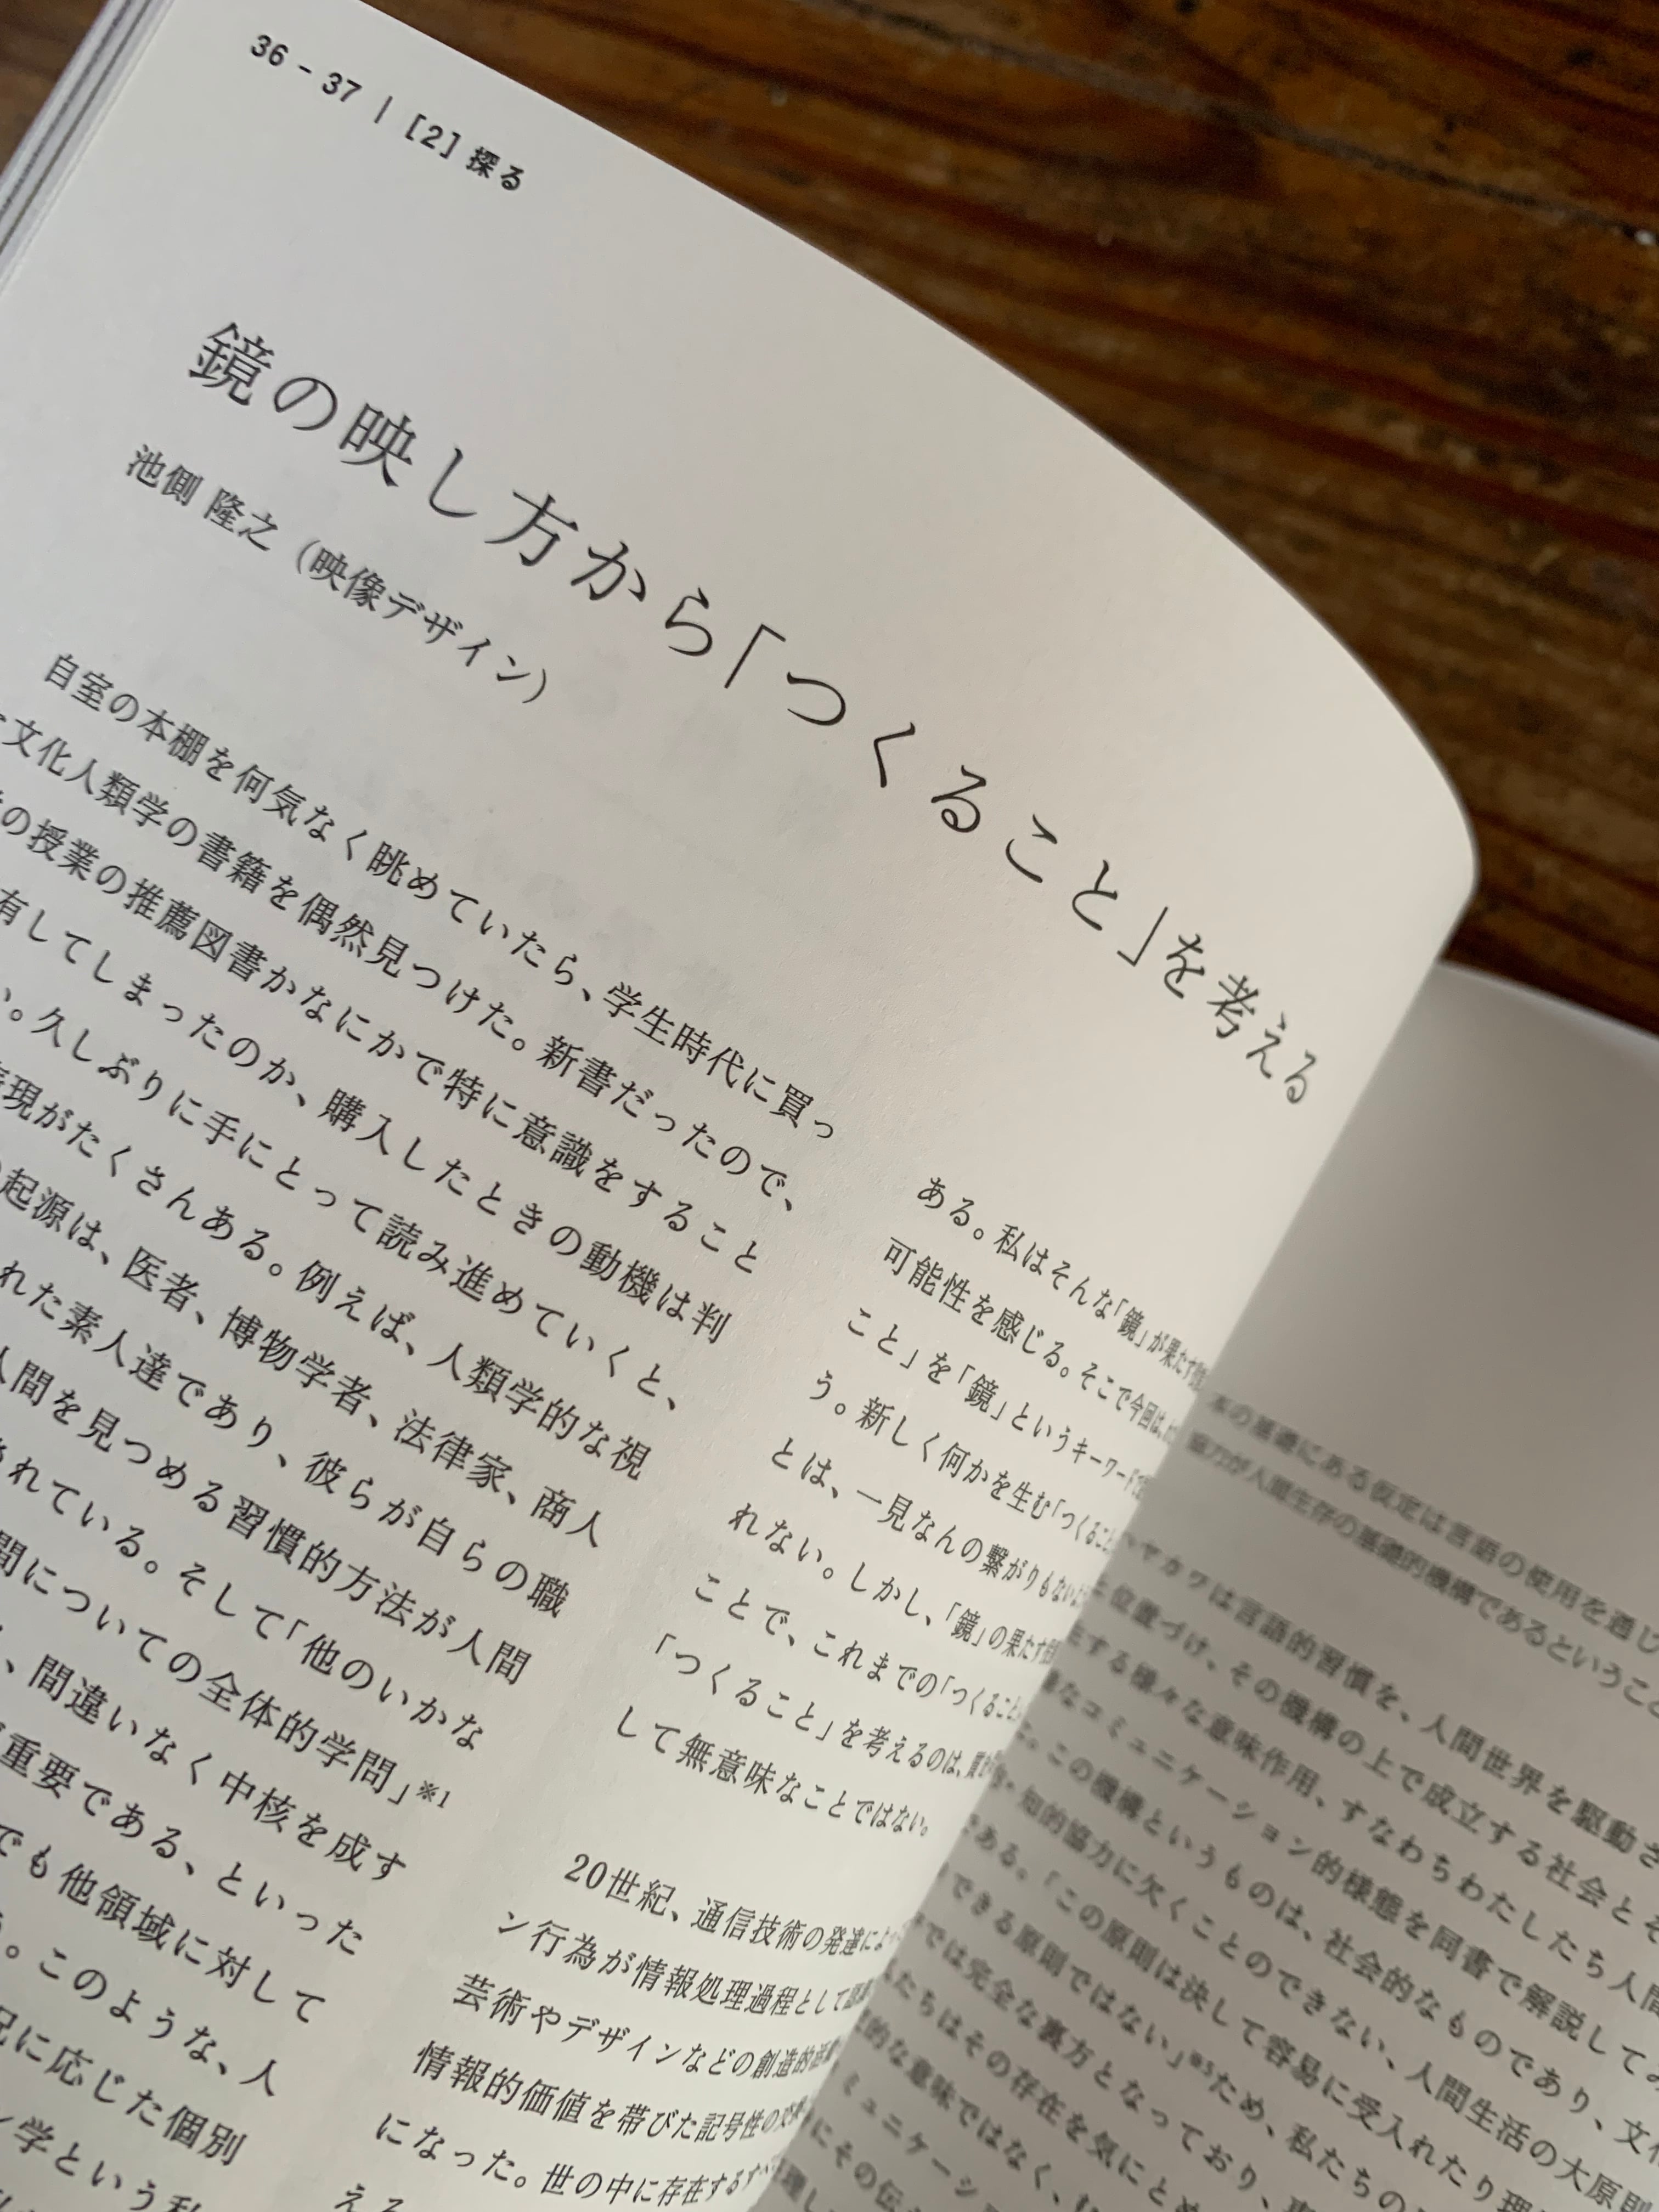 36 - 37 | [2] 探る
鏡の映し方から「つくること」を考える
池側 隆之（映像デザイン）
自室の本棚を何気なく眺めていたら、学生時代に買っ
文化人類学の書籍を偶然見つけた。新書だったので、
の授業の推薦図書かなにかで特に意識をすること
有してしまったのか、購入したときの動機は判
。久しぶりに手にとって読み進めていくと、
現がたくさんある。例えば、人類学的な視
起源は、医者、博物学者、法律家、商人
れた素人達であり、彼らが自らの職
人間を見つめる習慣的方法が人間
れている。そして「他のいかな
間についての全体的学問」※1
、間違いなく中核を成す
重要である、といった
でも他領域に対して
。このような、人
に応じた個別
学という
ある。私はそんな「鏡」が果たす
可能性を感じる。そこで今回は、
こと」を「鏡」というキーワードで
う。新しく何かを生む「つくること
とは、一見なんの繋がりもない
れない。しかし、「鏡」の果たす
ことで、これまでの「つくること
「つくること」を考えるのは、
して無意味なことではない。
20世紀、通信技術の発達によ
ン行為が情報処理過程として
芸術やデザインなどの創造的活動
情報的価値を帯びた記号性の
になった。世の中に存在する
える
本の基礎にある仮定は言語の使用を通じ
協力が人間生存の基礎的機構であるということ
ヤカワは言語的習慣を、人間世界を駆動さ
位置づけ、その機構の上で成立する社会とそ
する様々な意味作用、すなわちわたしたち人間
なコミュニケーション的様態を同書で解説してみ
。この機構というものは、社会的なものであり、文化
・知的協力に欠くことのできない、人間生活の大原則
ある。「この原則は決して容易に受入れたり理
できる原則ではない」※5ため、私たちの
では完全な裏方となっており、
たちはその存在を気にとめ
的な意味ではなく、む
ミュニケーショ
にその伝